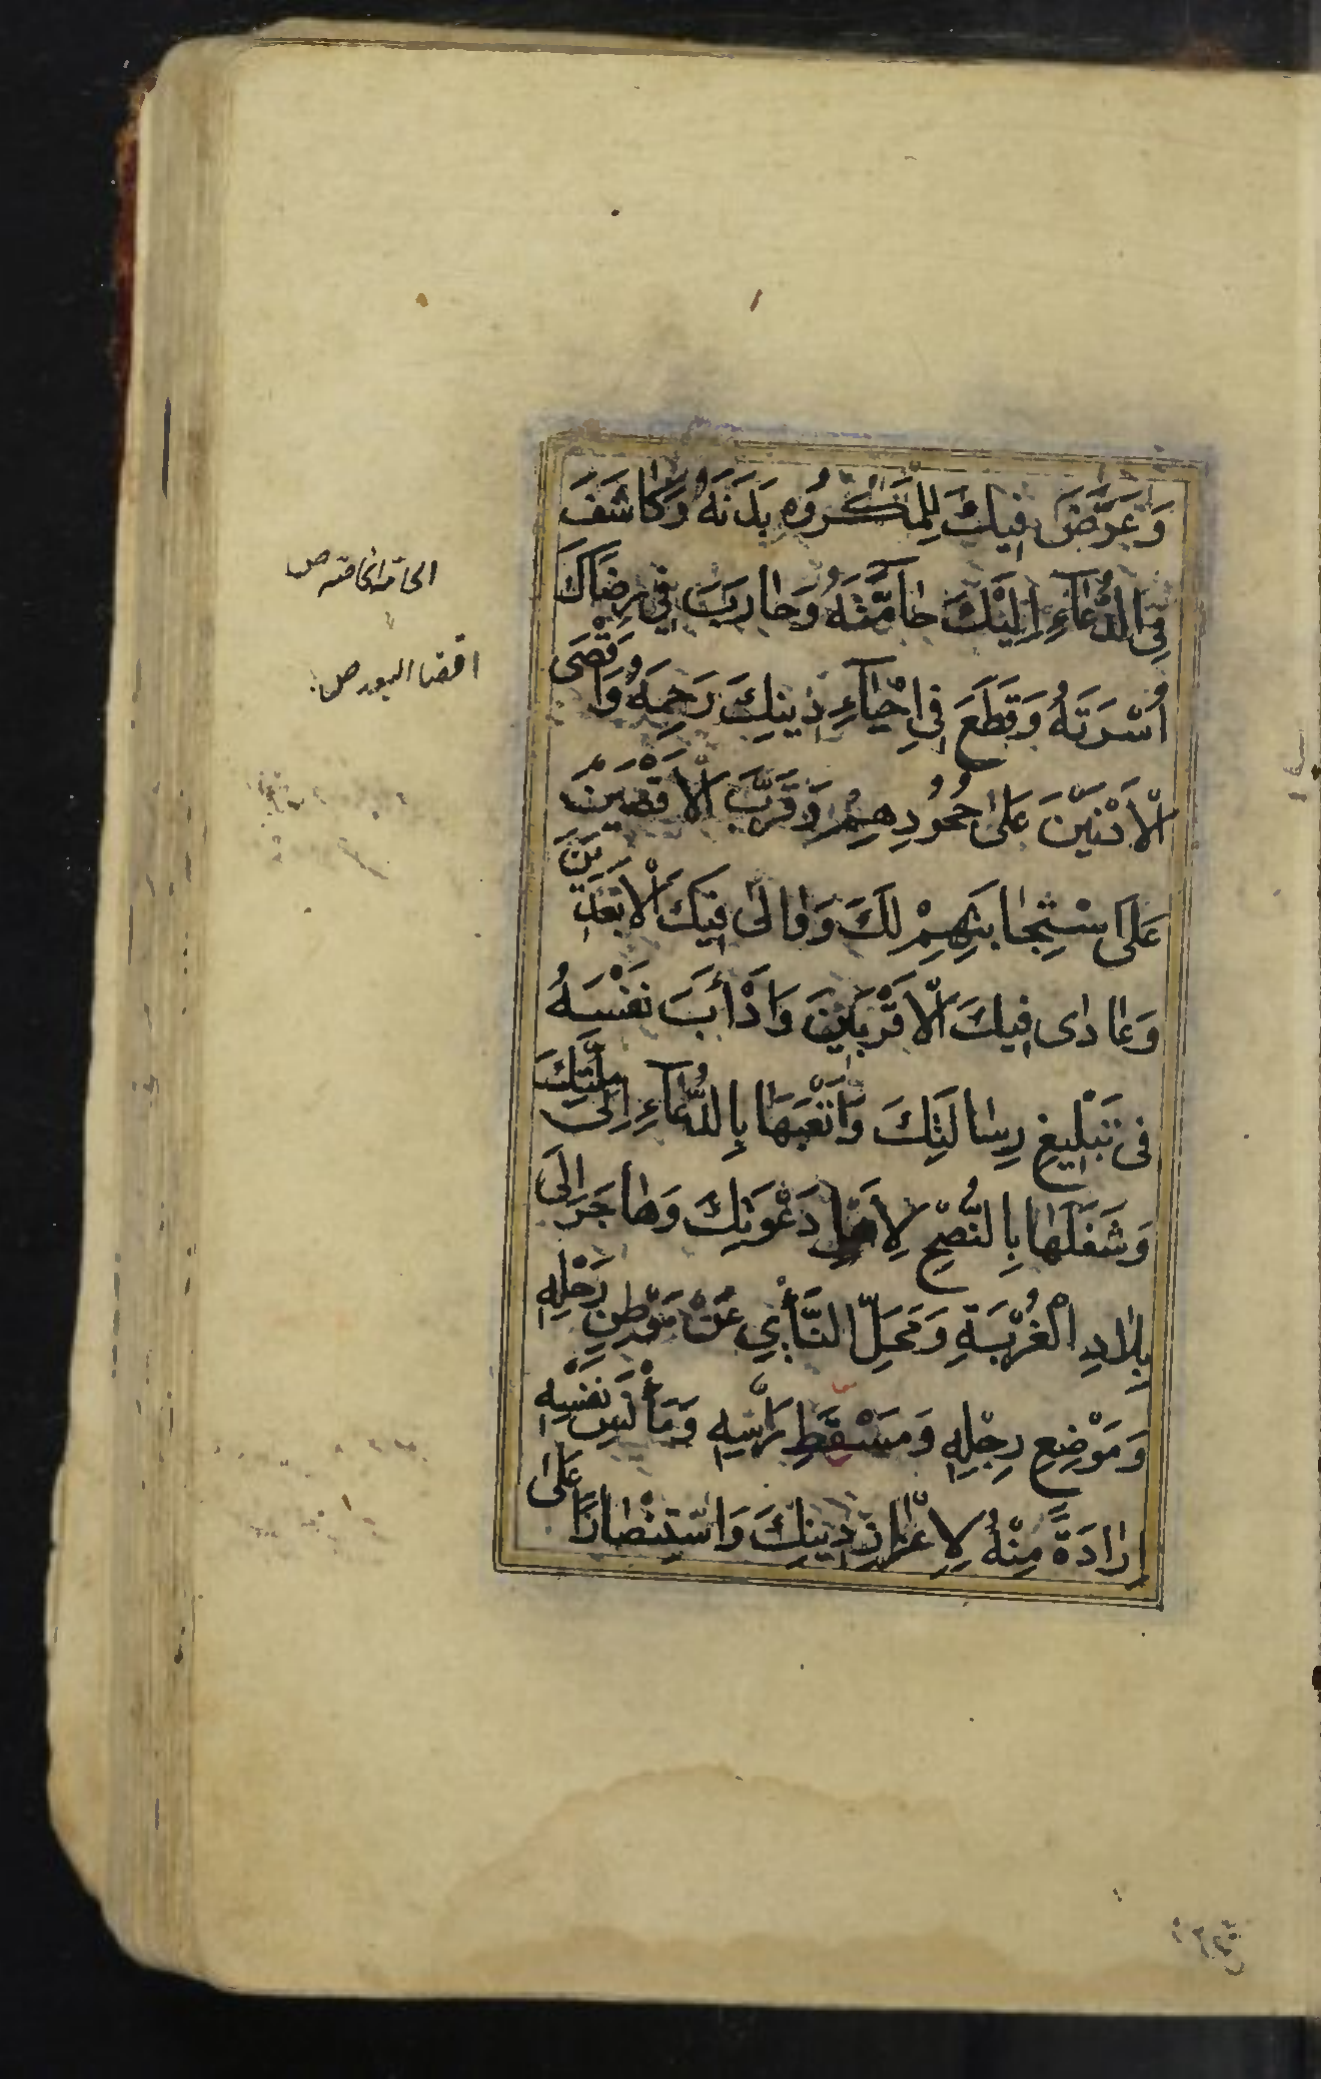 وَعَرَّضَ فِيكَ لِلْمَكْرُوهِ بَدَنَهُ وَكَاشَفَ
فِي الدُّعَاءِ إِلَيْكَ حَامَّتَهُ وَحَارَبَ فِي رِضَاكَ
أُسْرَتَهُ وَقَطَعَ فِي إِحْيَاءِ دِينِكَ رَحِمَهُ وَأَقْصَى
الْأَدْنَيْنَ عَلَى جُحُودِهِمْ وَقَرَّبَ الْأَقْصَيْنَ
عَلَى اسْتِجَابَتِهِمْ لَكَ وَوَالَى فِيكَ الْأَبْعَدِينَ
وَعَادَى فِيكَ الْأَقْرَبِينَ وَأَدْأَبَ نَفْسَهُ
فِي تَبْلِيغِ رِسَالَتِكَ وَأَتْعَبَهَا بِالدُّعَاءِ إِلَى مِلَّتِكَ
وَشَغَلَهَا بِالنُّصْحِ لِأَهْلِ دَعْوَتِكَ وَهَاجَرَ إِلَى
بِلَادِ الْغُرْبَةِ وَمَحَلِّ النَّأْيِ عَنْ مَوْطِنِ رَحْلِهِ
وَمَوْضِعِ رِجْلِهِ وَمَسْقَطِ رَأْسِهِ وَمَأْنَسِ نَفْسِهِ
إِرَادَةً مِنْهُ لِإِعْزَازِ دِينِكَ وَاسْتِنْصَارًا عَلَى